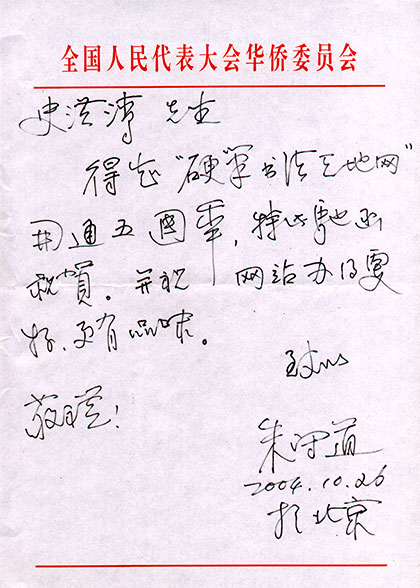 全国人民代表大会华侨委员会
史洪涛 先生
得悉"硬笔书法天地网"
开通五周年，特此驰函
祝贺。并祝 网站办得更
好、更有品味。
致以
敬礼！
朱守道
2004.10.26
于北京